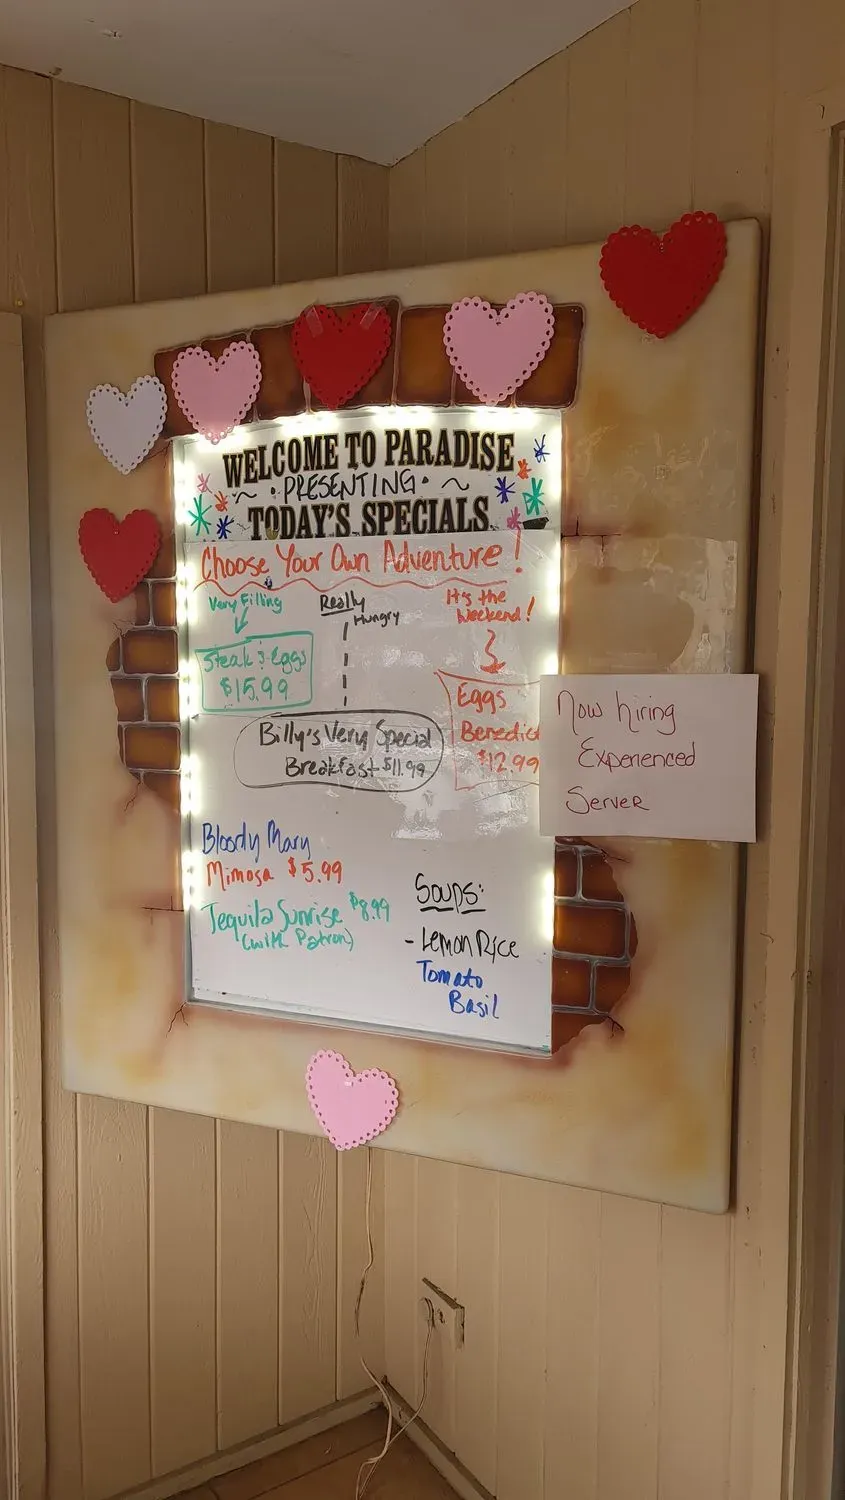 WELCOME TO PARADISE
~ • PRESENTING • ~
TODAY'S SPECIALS
Choose Your Own Adventure!
Very Filling
Steak & Eggs
$15.99
Really
Hungry
Billy's Very Special
Breakfast $11.99
It's the
Weekend!
Eggs
Benedict
$12.99
Now hiring
Experienced
Server
Bloody Mary
Mimosa $5.99
Tequila Sunrise $8.99
(with Patron)
Soups:
- Lemon Rice
Tomato
Basil